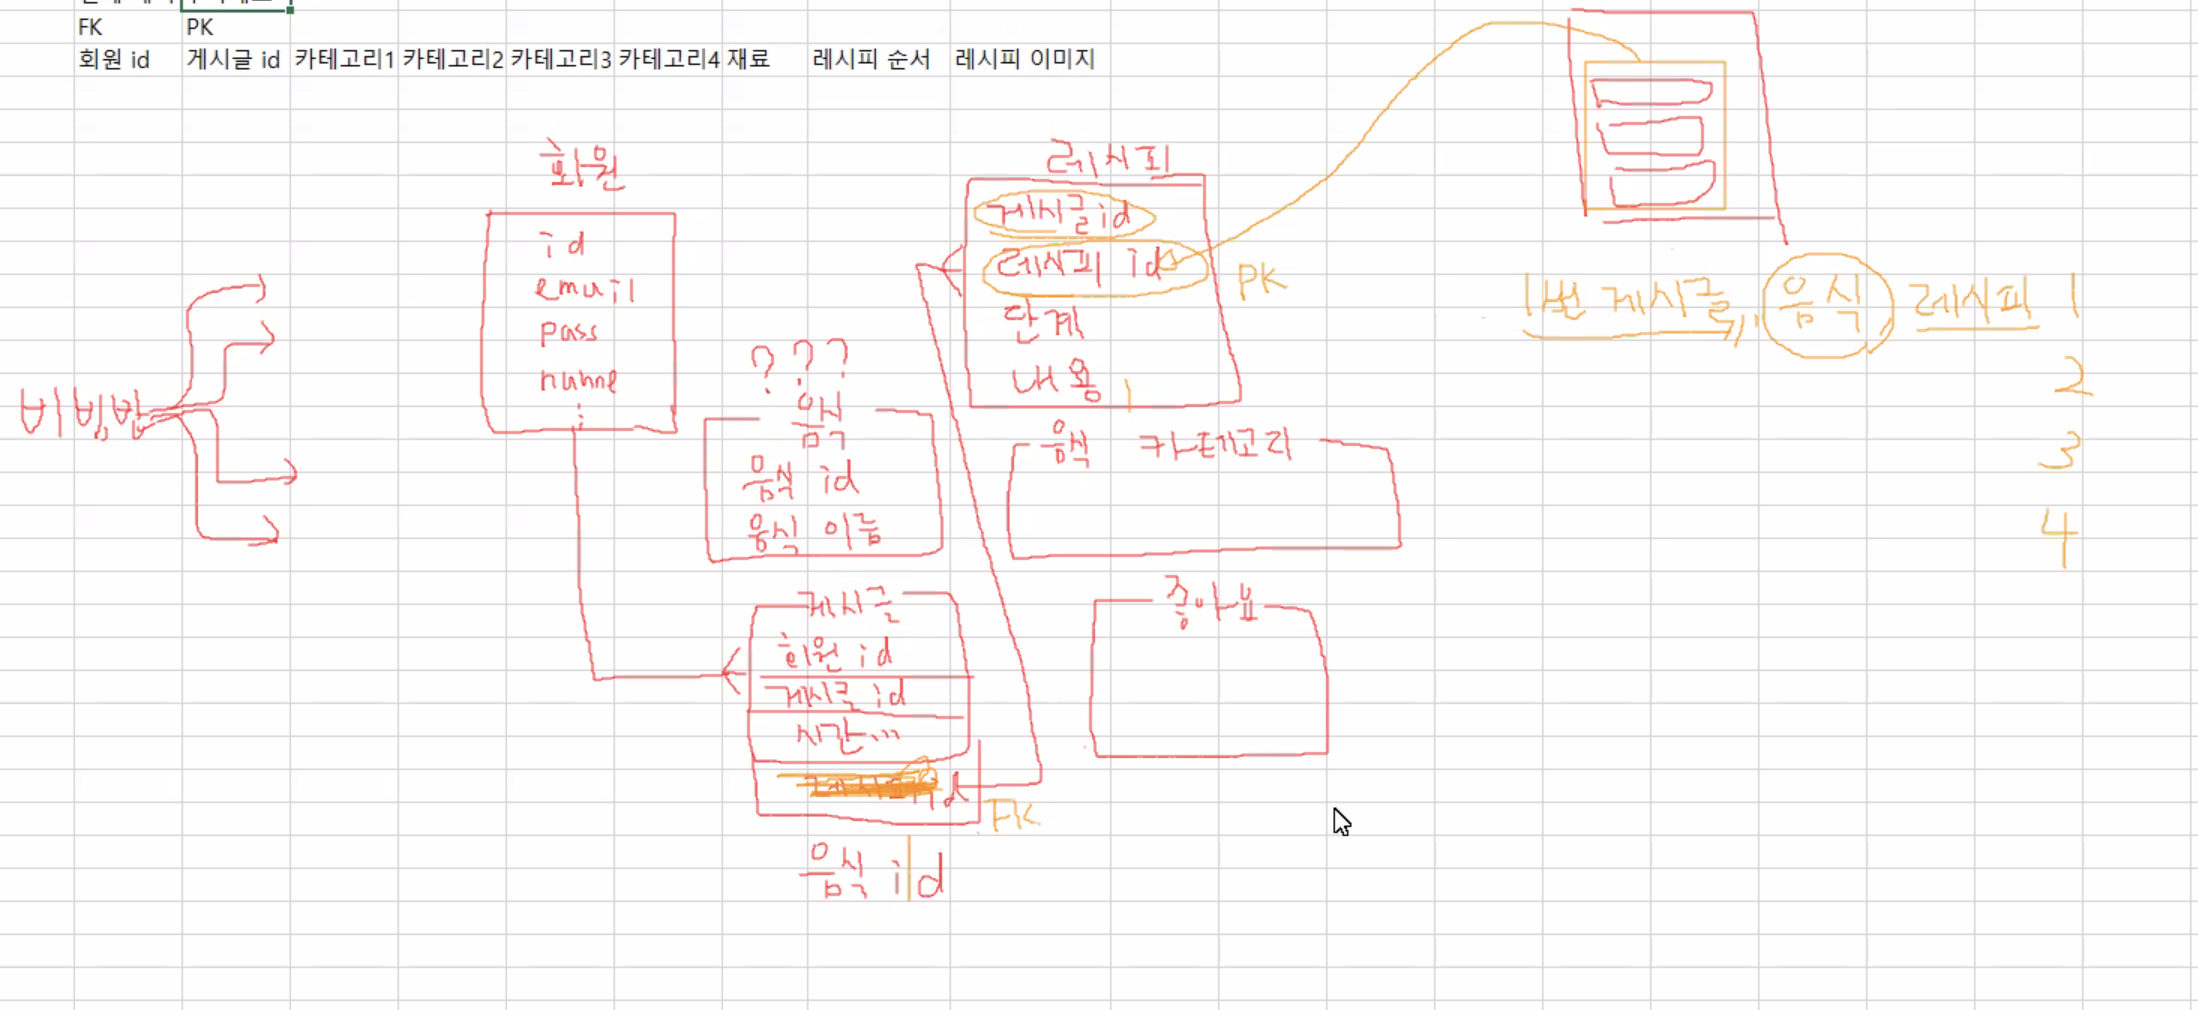 FK PK
회원 id 게시글 id 카테고리1 카테고리2 카테고리3 카테고리4 재료 레시피 순서 레시피 이미지
비빔밥
회원
id
email
pass
name
???
음식
음식 id
음식 이름
게시글
회원 id
게시글 id
시간...
id
FK
음식 id
레시피
게시글 id
레시피 id
PK
단계
내용
음식 카테고리
좋아요
1번 게시글, 음식 레시피 1
2
3
4